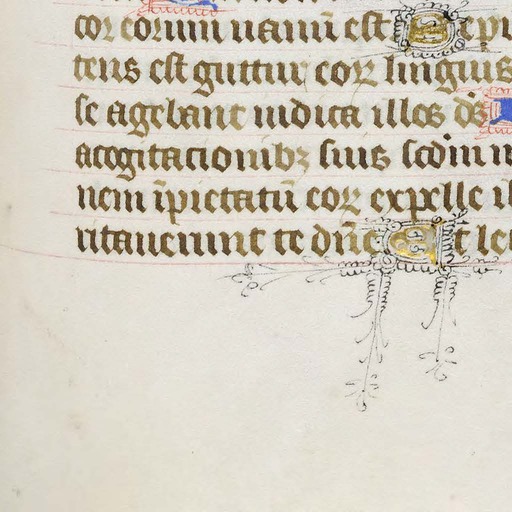 cor eorum uanũ est S epu
tens est guttur coꝝ linguis
se agebant iudica illos ds̃
acogitacionibꝫ suis scdm m
nem ĩpietatũ coꝝ expelle il
ritauerunt te dñe E t le